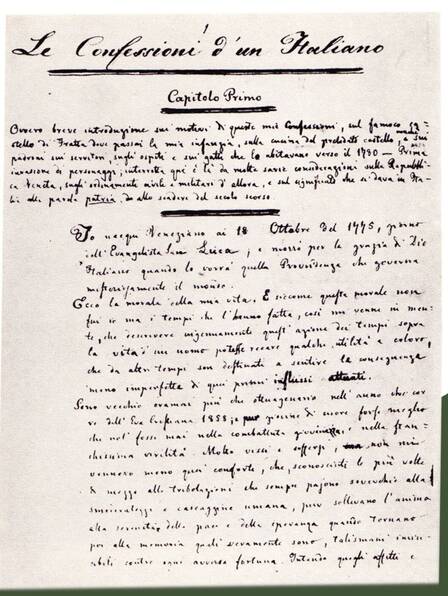 Le Confessioni d'un Italiano
Capitolo Primo
Ovvero breve introduzione sui motivi di queste mie Confessioni, sul famoso ca-
stello di Fratta dove passai la mia infanzia, sulla cucina del prelodato castello, nonchè sui
padroni sui servitori, sugli ospiti e sui gatti che lo abitavano verso il 1780 — Prima
invasione di personaggi; interrotta qua e là da molte savie considerazioni sulla Repubbli-
ca Veneta, sugli ordinamenti civili e militari d'allora, e sul significato che si dava in Ita-
lia alla parola patria, allo scadere del secolo scorso.
Io nacqui Veneziano ai 18 Ottobre del 1775, giorno
dell'Evangelista San Luca; e morrò per la grazia di Dio
Italiano quando lo vorrà quella Provvidenza che governa
misteriosamente il mondo.
Ecco la morale della mia vita. E siccome questa morale non
fui io ma i tempi che l'hanno fatta, così mi venne in men-
te, che descrivere ingenuamente quest'azione dei tempi sopra
la vita d'un uomo potesse recare qualche utilità a coloro,
che da altri tempi son destinati a sentire le conseguenze
meno imperfette di quei primi influssi attuati.
Sono vecchio oramai più che ottuagenario nell'anno che cor-
re dell'Era Cristiana 1858; e pur giovine di cuore forse meglio
che nol fossi mai nella combattuta giovinezza, e nella stan-
chissima virilità. Molto vissi e soffersi; ma non mi
vennero meno quei conforti, che, sconosciuti le più volte
di mezzo alle tribolazioni che sempre pajono soverchie alla
smoderatezza e cascaggine umana, pur sollevano l'anima
alla serenità della pace e della speranza quando tornano
poi alla memoria quali veramente sono, talismani invin-
cibili contro ogni avversa fortuna. Intendo quegli affetti e